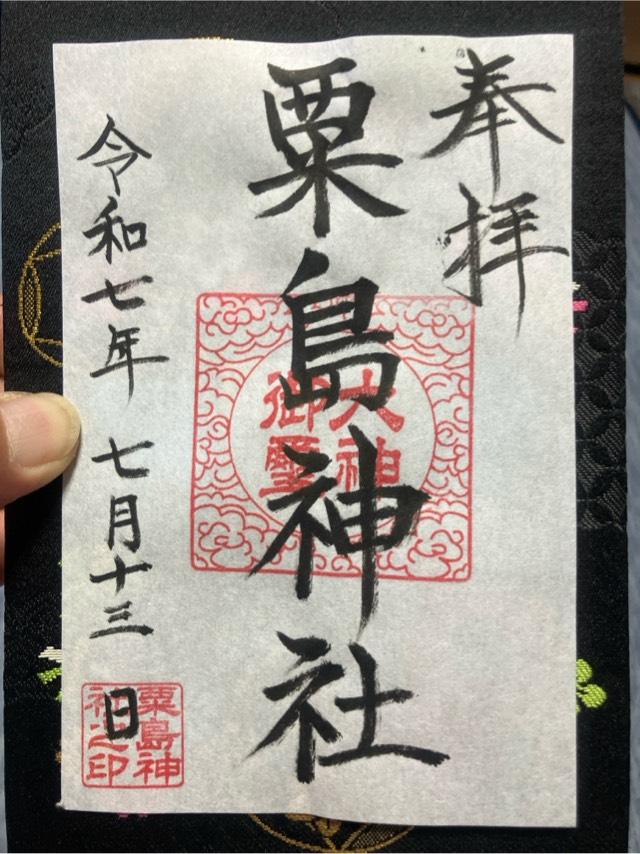 奉拝
粟島神社
大神
御璽
令和七年 七月十三日
粟島神
社之印